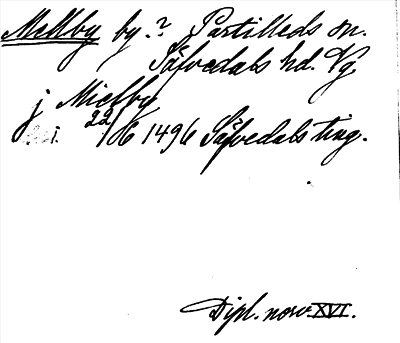 Mellby by.? Partilleds sn.
Säfvedals hd. Vg
j Mielby
22/6 1496 Säfvedals ting.
Dipl. norv. XVI.